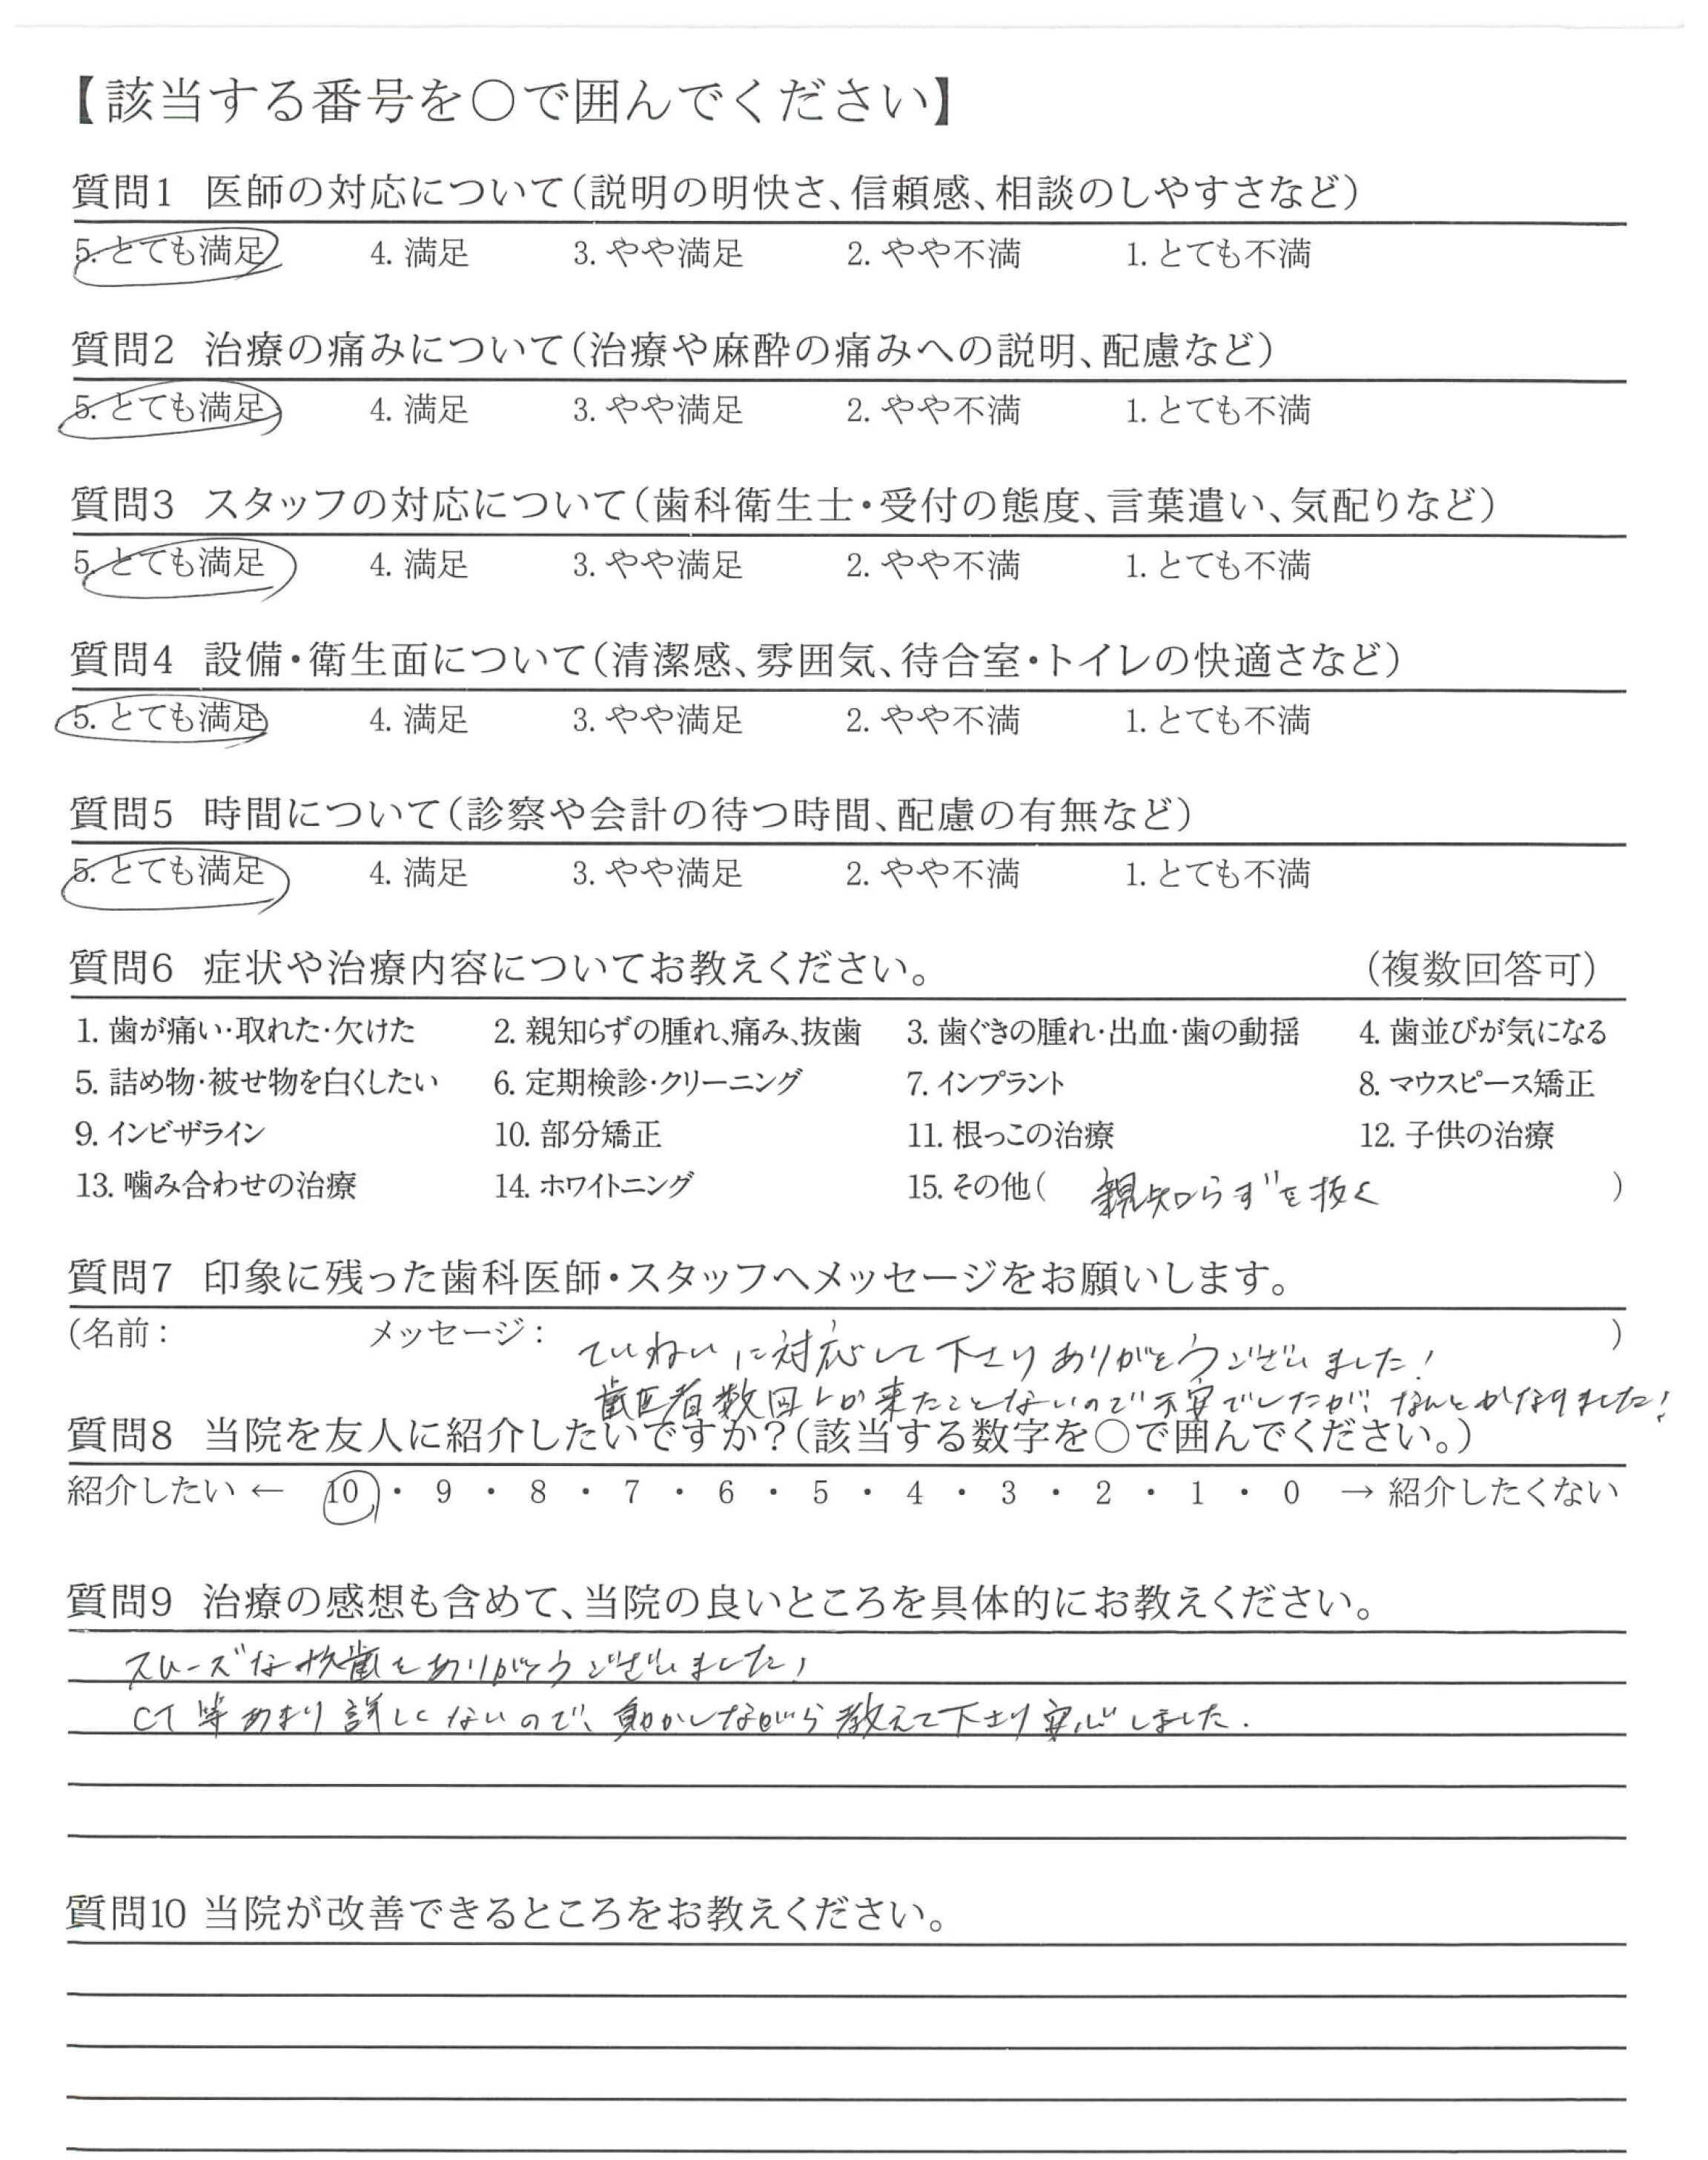 【該当する番号を○で囲んでください】
質問1 医師の対応について(説明の明快さ、信頼感、相談のしやすさなど)
5. とても満足 4. 満足 3. やや満足 2. やや不満 1. とても不満
質問2 治療の痛みについて(治療や麻酔の痛みへの説明、配慮など)
5. とても満足 4. 満足 3. やや満足 2. やや不満 1. とても不満
質問3 スタッフの対応について(歯科衛生士・受付の態度、言葉遣い、気配りなど)
5. とても満足 4. 満足 3. やや満足 2. やや不満 1. とても不満
質問4 設備・衛生面について(清潔感、雰囲気、待合室・トイレの快適さなど)
5. とても満足 4. 満足 3. やや満足 2. やや不満 1. とても不満
質問5 時間について(診察や会計の待つ時間、配慮の有無など)
5. とても満足 4. 満足 3. やや満足 2. やや不満 1. とても不満
質問6 症状や治療内容についてお教えください。 (複数回答可)
1. 歯が痛い・取れた・欠けた 2. 親知らずの腫れ、痛み、抜歯 3. 歯ぐきの腫れ・出血・歯の動揺 4. 歯並びが気になる
5. 詰め物・被せ物を白くしたい 6. 定期検診・クリーニング 7. インプラント 8. マウスピース矯正
9. インビザライン 10. 部分矯正 11. 根っこの治療 12. 子供の治療
13. 噛み合わせの治療 14. ホワイトニング 15. その他( 親知らずを抜く )
質問7 印象に残った歯科医師・スタッフへメッセージをお願いします。
(名前: メッセージ: ていねいに対応して下さりありがとうございました! )
歯医者数回しか来たことないので不安でしたが、なんとかなりました!
質問8 当院を友人に紹介したいですか?(該当する数字を○で囲んでください。)
紹介したい ← 10 ・ 9 ・ 8 ・ 7 ・ 6 ・ 5 ・ 4 ・ 3 ・ 2 ・ 1 ・ 0 → 紹介したくない
質問9 治療の感想も含めて、当院の良いところを具体的にお教えください。
スムーズな抜歯をありがとうございました!
CT等あまり詳しくないので、動かしながら教えて下さり安心しました.
質問10 当院が改善できるところをお教えください。